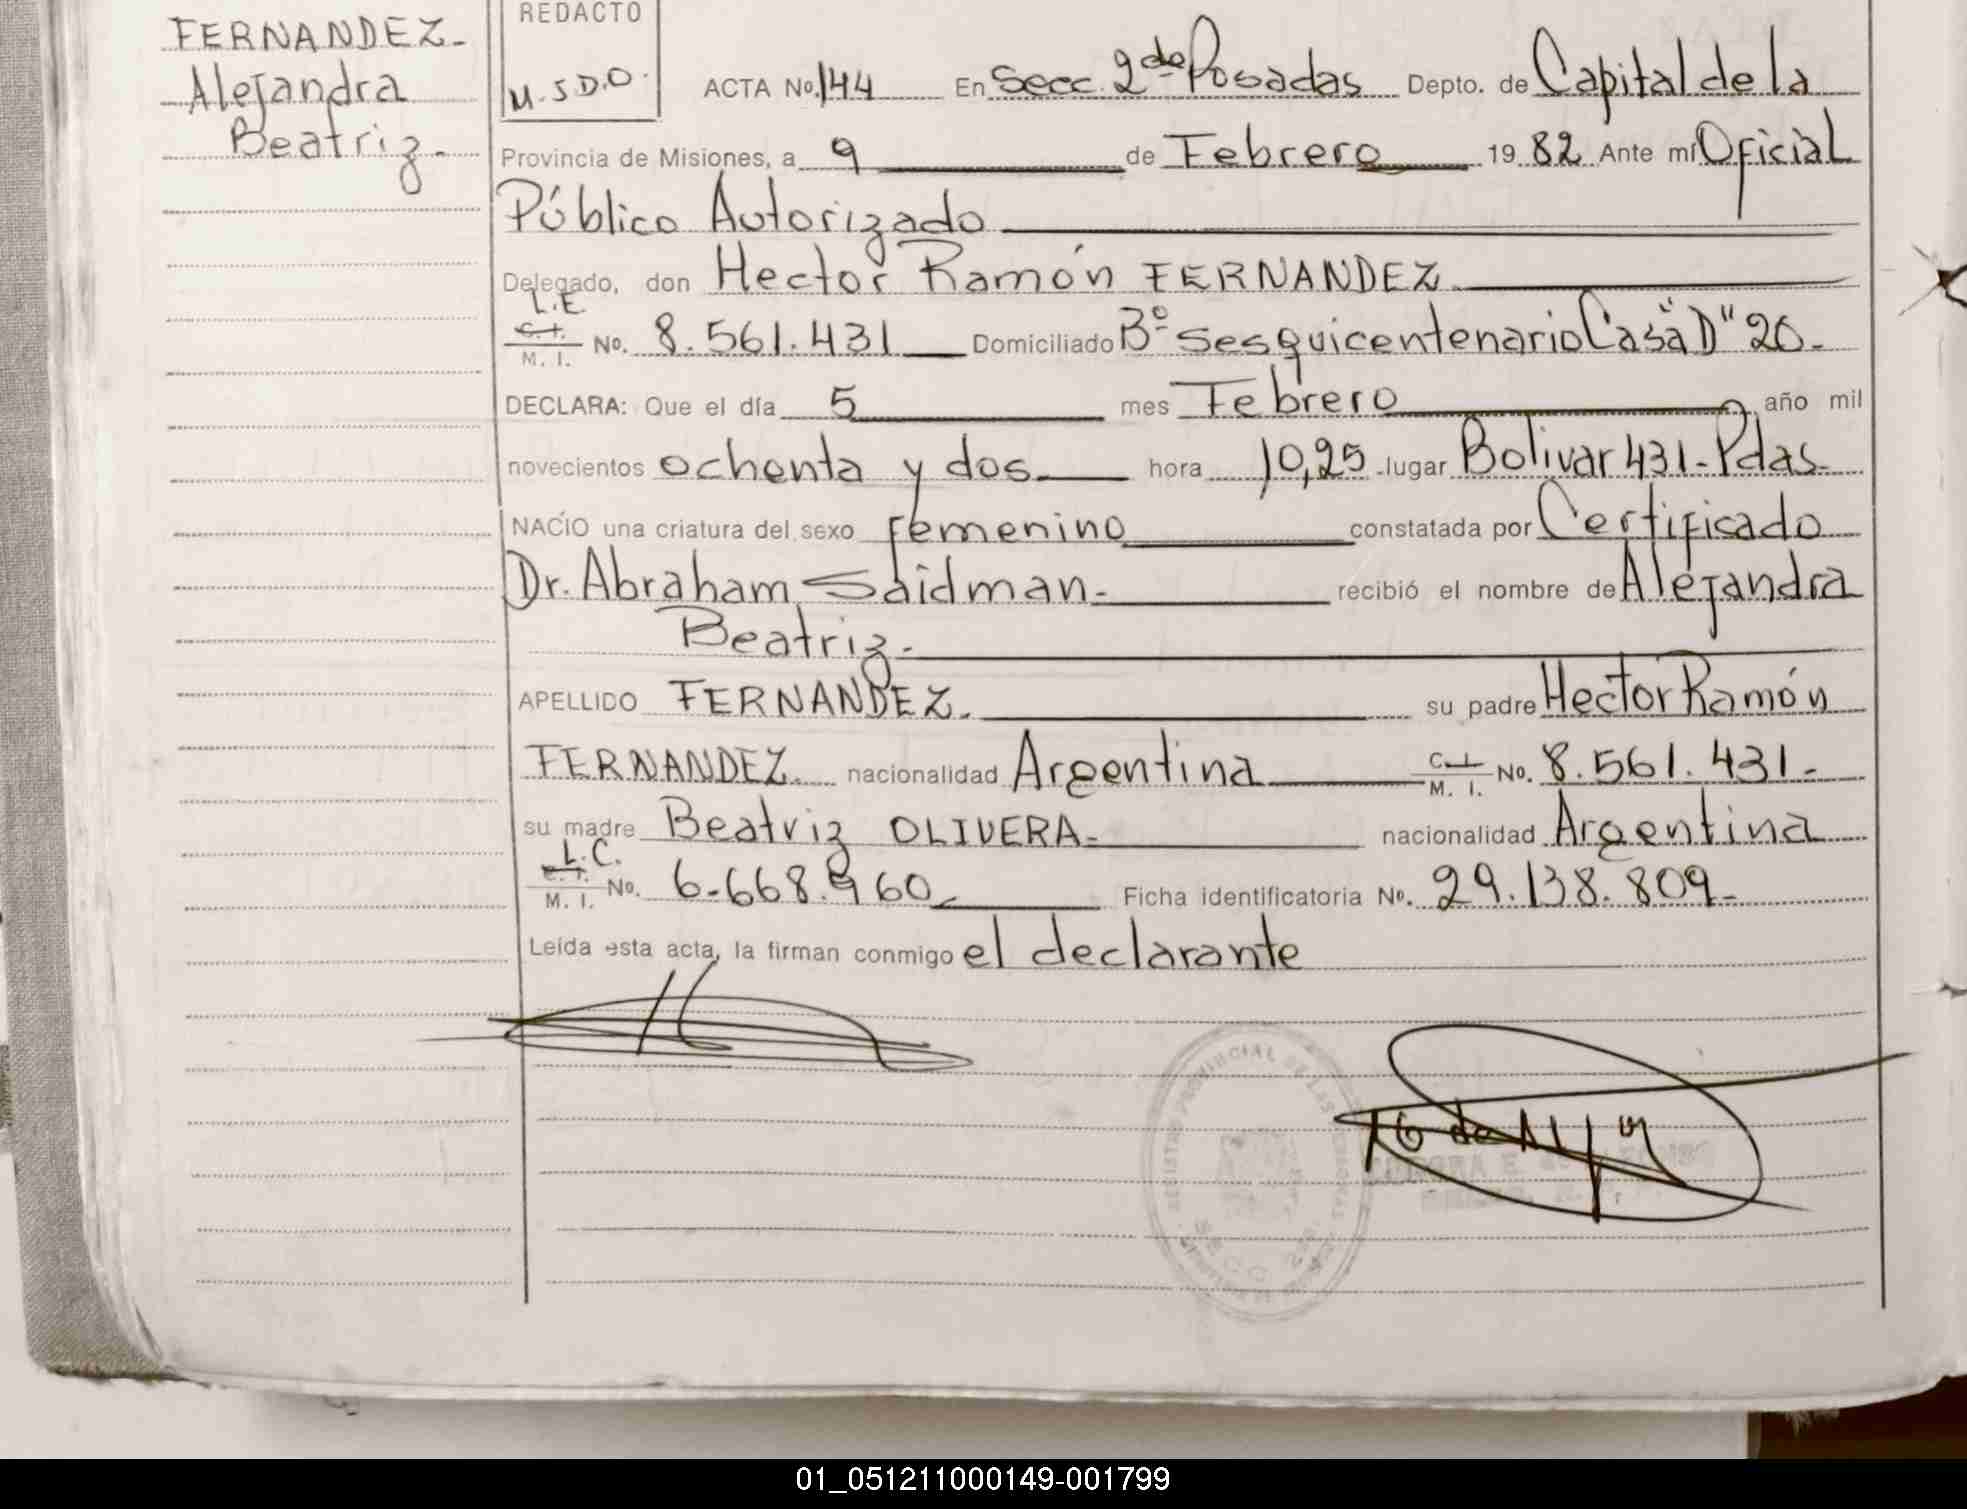 FERNANDEZ-
Alejandra
Beatriz.-
REDACTO
M.S.D.O.
ACTA No. 144 En Secc. 2de Posadas Depto. de Capital de la
Provincia de Misiones, a 9 de Febrero 19 82 Ante mí Oficial
Público Autorizado
Delegado, don Hector Ramón FERNANDEZ
L.E.
C.I.
M. I. No. 8.561.431 Domiciliado Bº Sesquicentenario Casa "D" 20.-
DECLARA: Que el día 5 mes Febrero año mil
novecientos ochenta y dos. hora 10,25 lugar Bolivar 431-Pdas.
NACIO una criatura del sexo femenino constatada por Certificado
Dr. Abraham Saidman.- recibió el nombre de Alejandra
Beatriz.-
APELLIDO FERNANDEZ. su padre Hector Ramón
FERNANDEZ. nacionalidad Argentina C.I.
M. I. No. 8.561.431.-
su madre Beatriz OLIVERA- nacionalidad Argentina
L.C.
C.I.
M. I. No. 6.668.960 Ficha identificatoria No. 29.138.809-
Leída esta acta, la firman conmigo el declarante
REGISTRO PROVINCIAL DE LAS PERSONAS
01_051211000149-001799